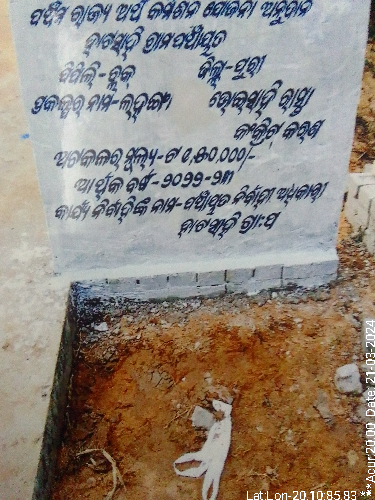 ପଞ୍ଚମ ରାଜ୍ୟ ଅର୍ଥ କମିଶନ ଯୋଜନା ଅନୁଦାନ
ହାଟସାହି ଗ୍ରାମପଞ୍ଚାୟତ
ପିପିଲି-ବ୍ଲକ୍ ଜିଲ୍ଲା-ପୁରୀ
ପ୍ରକଳ୍ପର ନାମ- ରାସ୍ତା
କଂକ୍ରିଟ କରଣ
ଅଟକଳର ମୂଲ୍ୟ-ଟ
ଆର୍ଥିକ ବର୍ଷ-୨୦୨୨-୨୩
କାର୍ଯ୍ୟ ନିର୍ବାହିଙ୍କ ନାମ-ପଞ୍ଚାୟତ ନିର୍ବାହୀ ଅଧିକାରୀ
ହାଟସାହି ଗ୍ରା:ପ
Lat:Lon-20.10:85.83
**Acur:20.00 Date: 21-03-2024